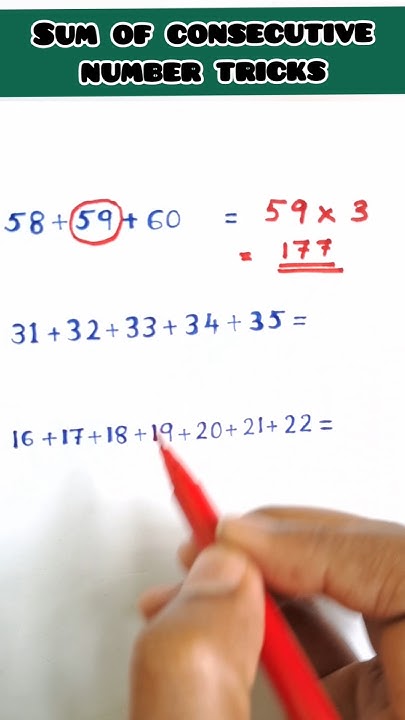 SUM OF CONSECUTIVE
NUMBER TRICKS
58+59+60 = 59 × 3
= 177
31+32+33+34+35=
16+17+18+19+20+21+22=